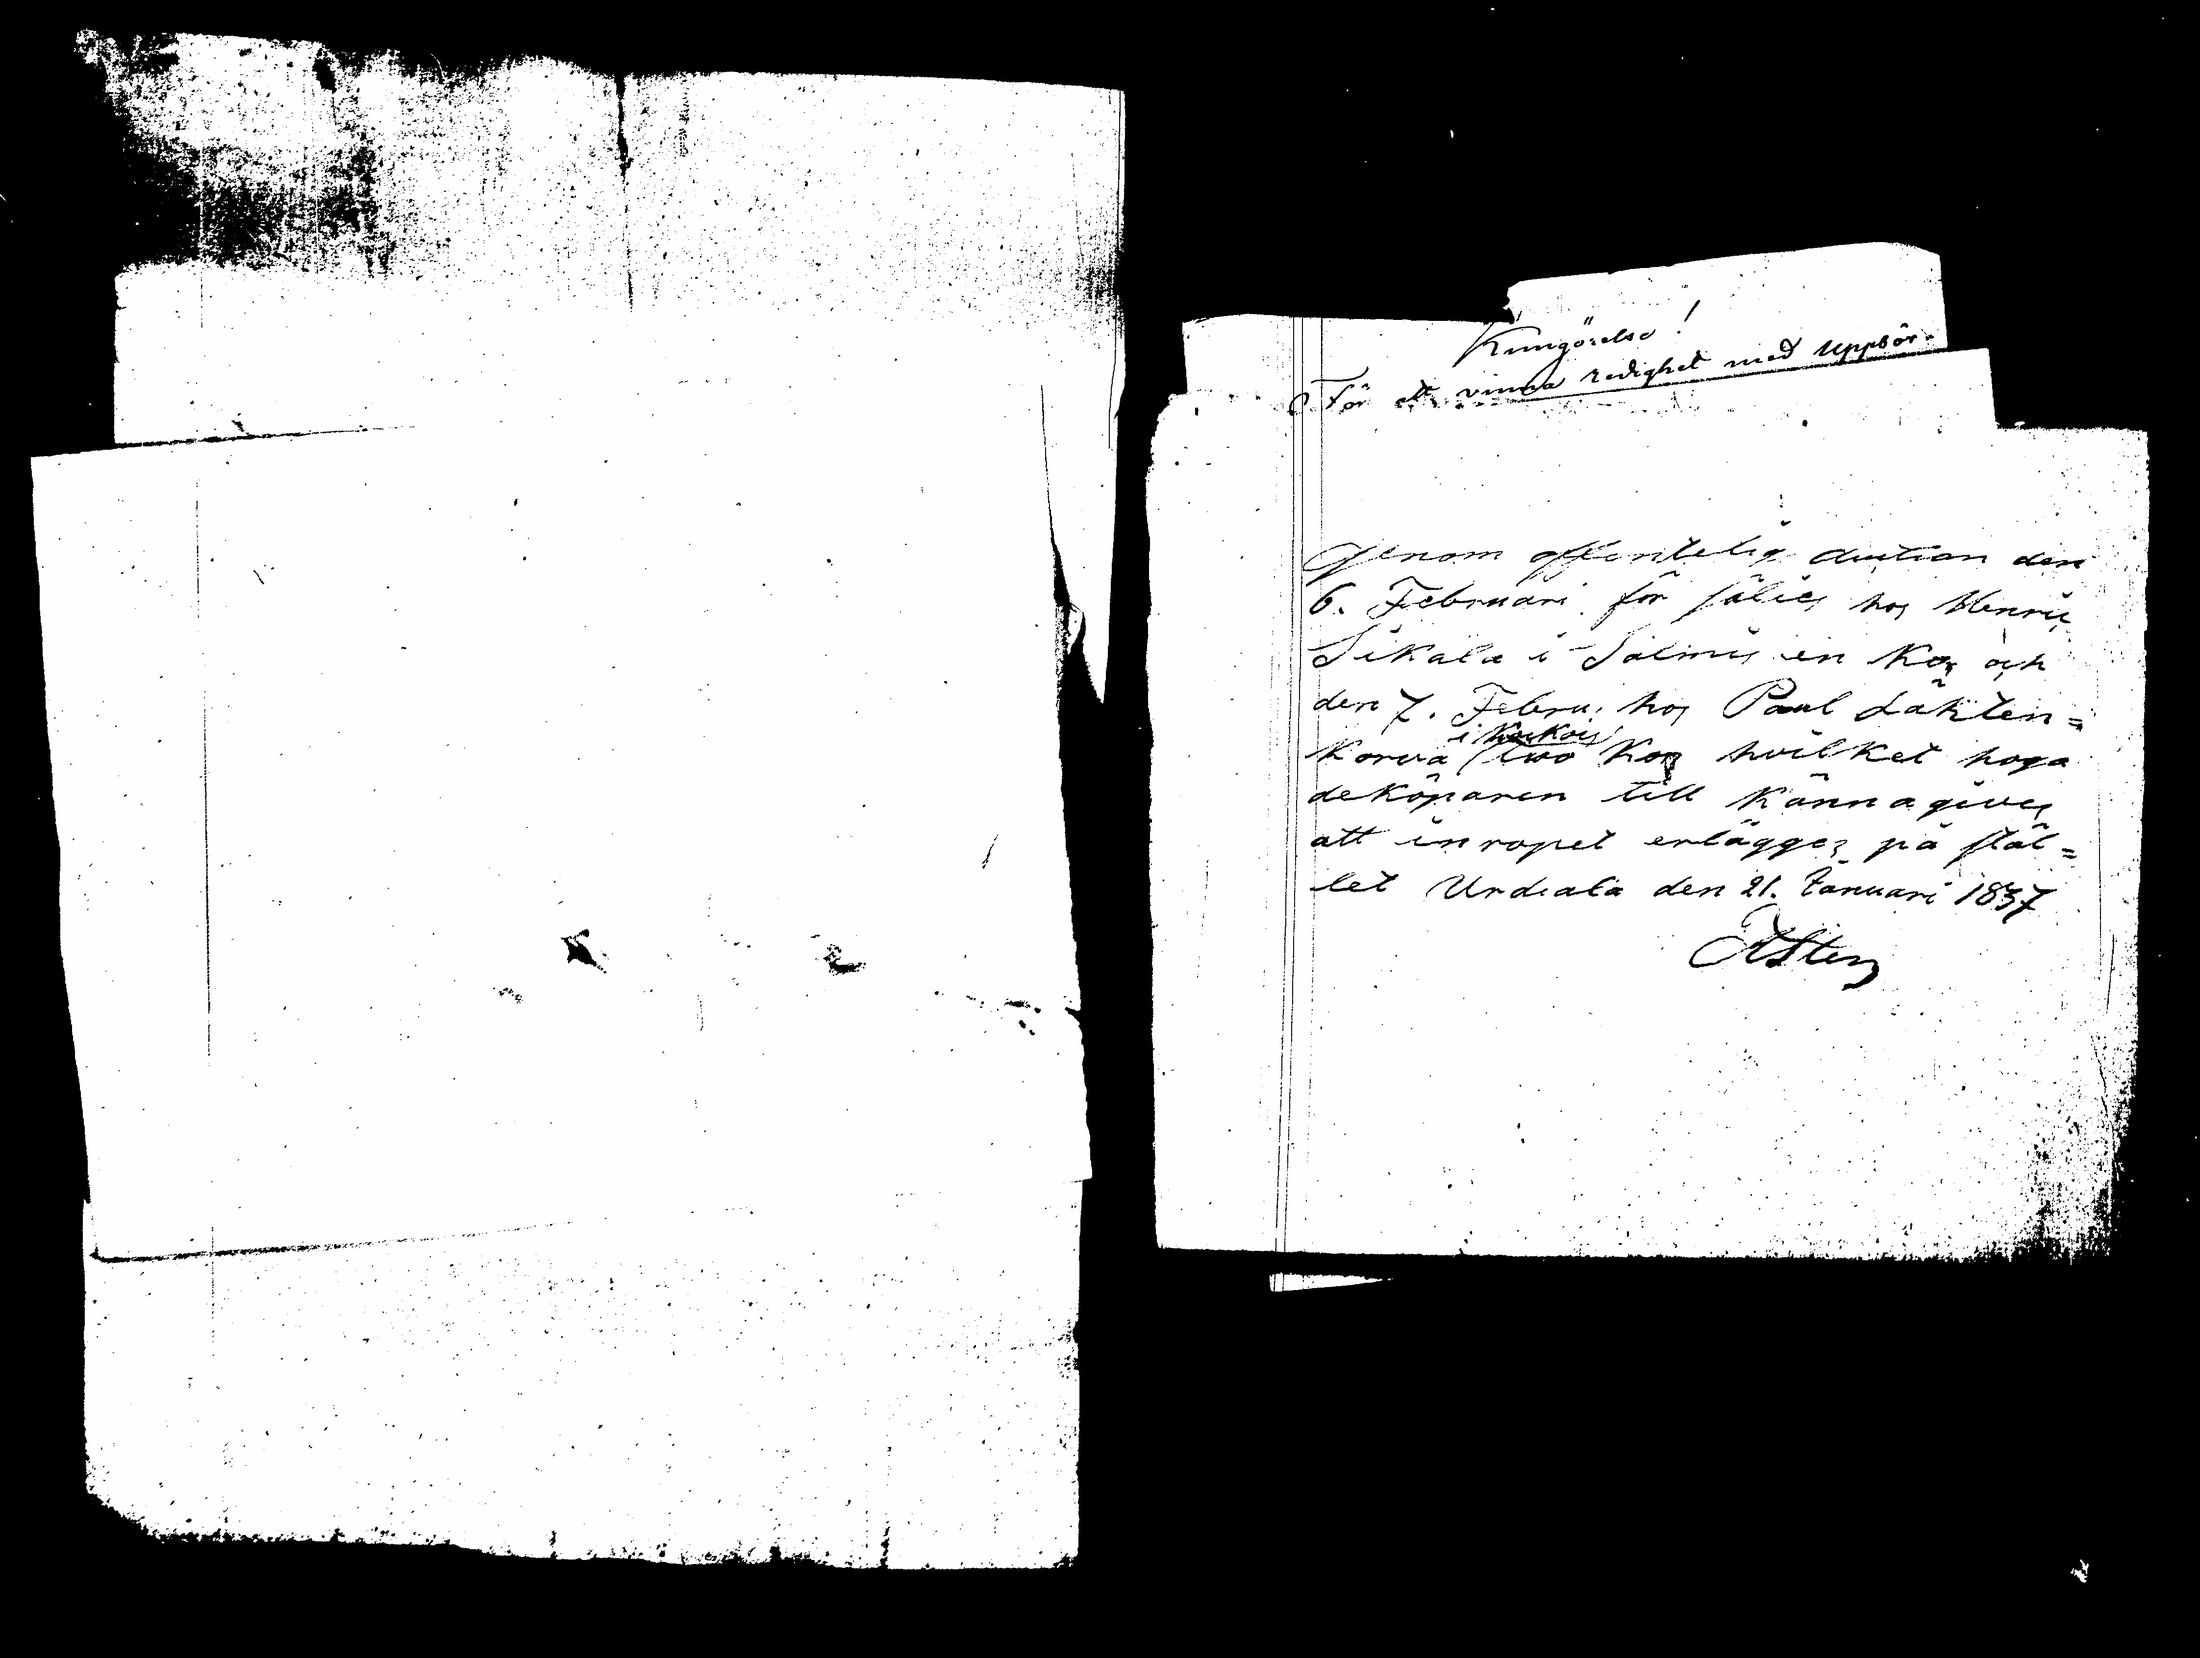 Kungörelse!
För att vinna redighet med uppbör-
Genom offentelig auction den
6. Februari för säljes hos Henric
Sikala i Salmis en Ko, och
den 7. Febru. hos Paul Lähten=
i Koikois
korva two Kor hvilket hoga
deköparen till Kännagives
att inropet erlägges på stäl=
let Urdiala den 21. Januari 1837